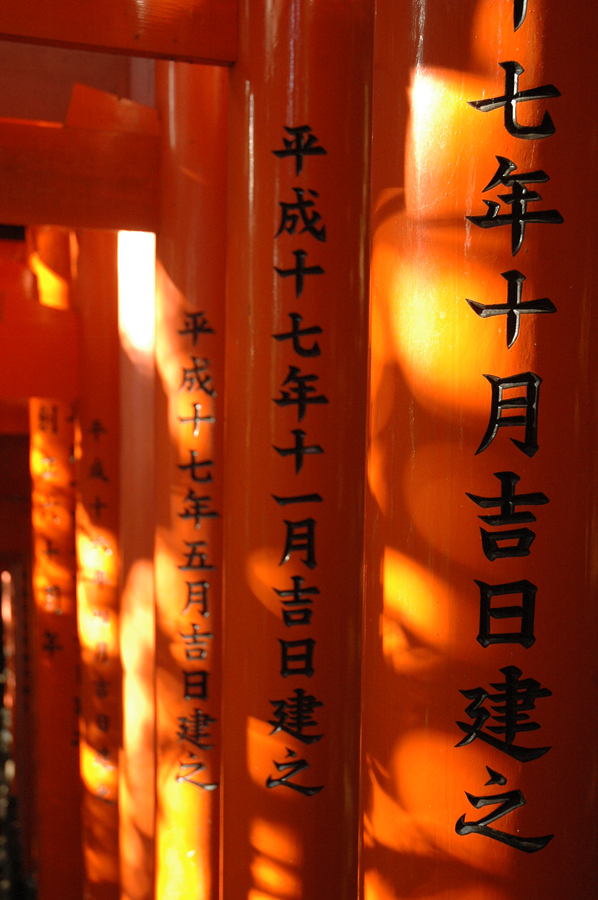 十七年十月吉日建之
平成十七年十一月吉日建之
平成十七年五月吉日建之